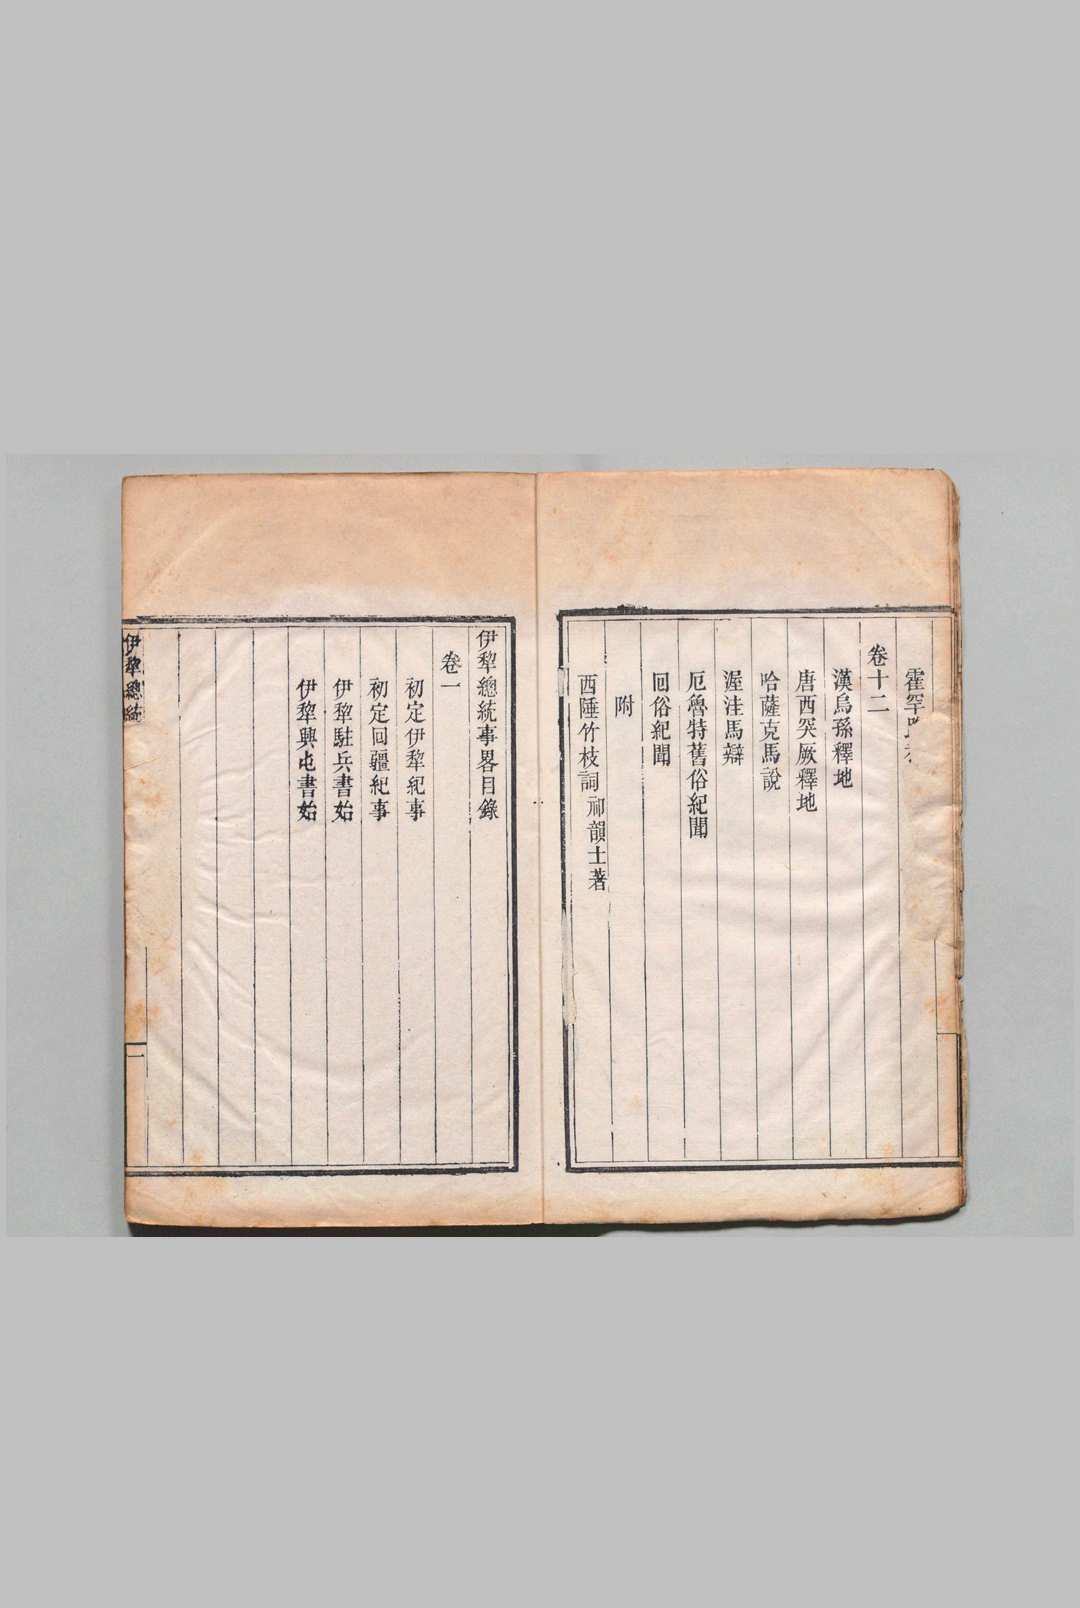 霍罕
卷十二
漢烏孫釋地
唐西突厥釋地
哈薩克馬說
渥洼馬辯
厄魯特舊俗紀聞
回俗紀聞
附
西陲竹枝詞 祁韻士著
伊犂總統事畧目錄
卷一
初定伊犂紀事
初定回疆紀事
伊犂駐兵書始
伊犂興屯書始
伊犂總統
一